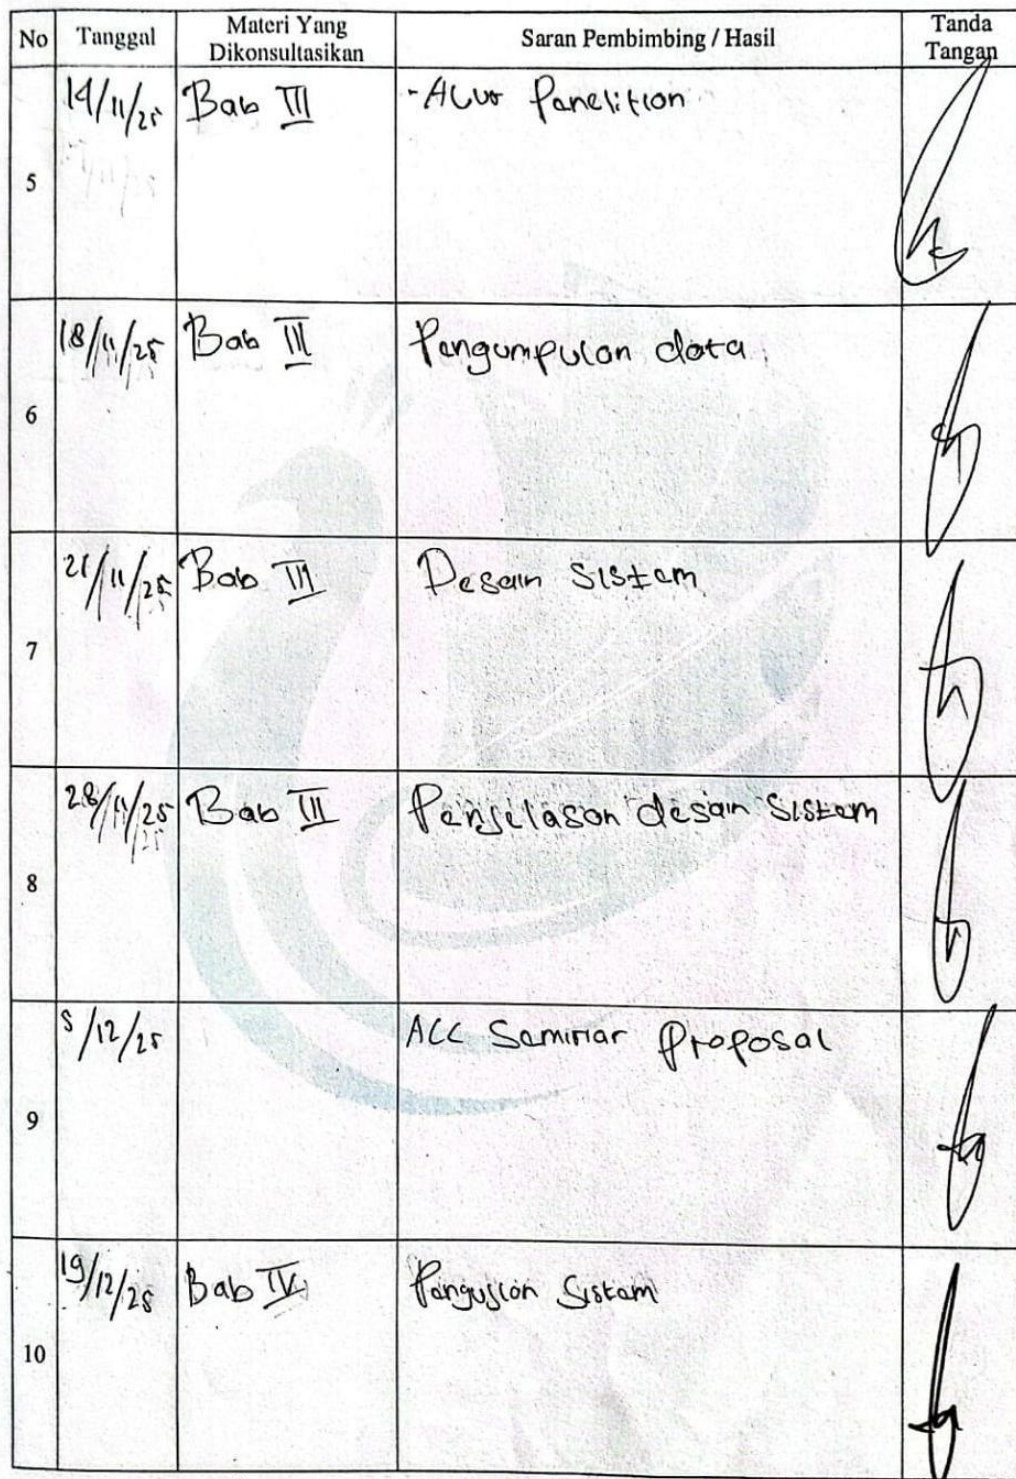 No Tanggal Materi Yang Dikonsultasikan Saran Pembimbing / Hasil Tanda Tangan
5 14/11/25 Bab III - Alur Penelitian
6 18/11/25 Bab III Pengumpulan data
7 21/11/25 Bab III Desain Sistem
8 28/11/25 Bab III Penjelasan desain Sistem
9 5/12/25 ACC Seminar Proposal
10 19/12/25 Bab IV Pengujian Sistem